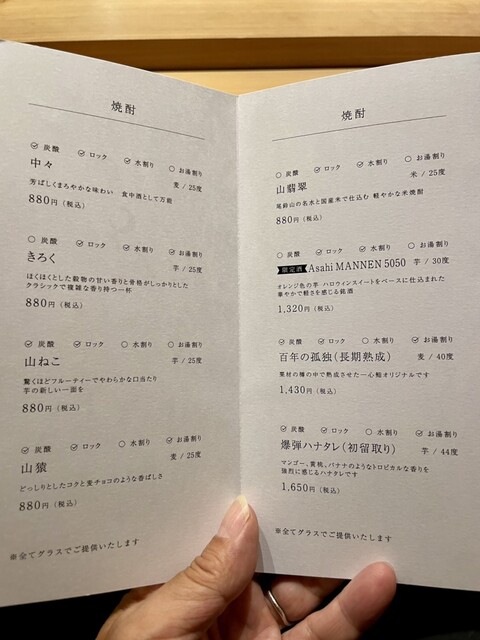 焼酎
炭酸 ロック 水割り お湯割り
中々 麦 / 25度
芳ばしくまろやかな味わい 食中酒として万能
880円（税込）
炭酸 ロック 水割り お湯割り
きろく 芋 / 25度
ほくほくとした穀物の甘い香りと骨格がしっかりとした
クラシックで複雑な香り持つ一杯
880円（税込）
炭酸 ロック 水割り お湯割り
山ねこ 芋 / 25度
驚くほどフルーティーでやわらかな口当たり
芋の新しい一面を
880円（税込）
炭酸 ロック 水割り お湯割り
山猿 麦 / 25度
どっしりとしたコクと麦チョコのような香ばしさ
880円（税込）
※全てグラスでご提供いたします
焼酎
炭酸 ロック 水割り お湯割り
山翡翠 米 / 25度
尾鈴山の名水と国産米で仕込む 軽やかな米焼酎
880円（税込）
炭酸 ロック 水割り お湯割り
限定酒 Asahi MANNEN 5050 芋 / 30度
オレンジ色の芋 ハロウィンスイートをベースに仕込まれた
華やかで軽さを感じる銘酒
1,320円（税込）
炭酸 ロック 水割り お湯割り
百年の孤独（長期熟成） 麦 / 40度
栗材の樽の中で熟成させた一心鮨オリジナルです
1,430円（税込）
炭酸 ロック 水割り お湯割り
爆弾ハナタレ（初留取り） 芋 / 44度
マンゴー、黄桃、バナナのようなトロピカルな香りを
強烈に感じるハナタレです
1,650円（税込）
※全てグラスでご提供いたします